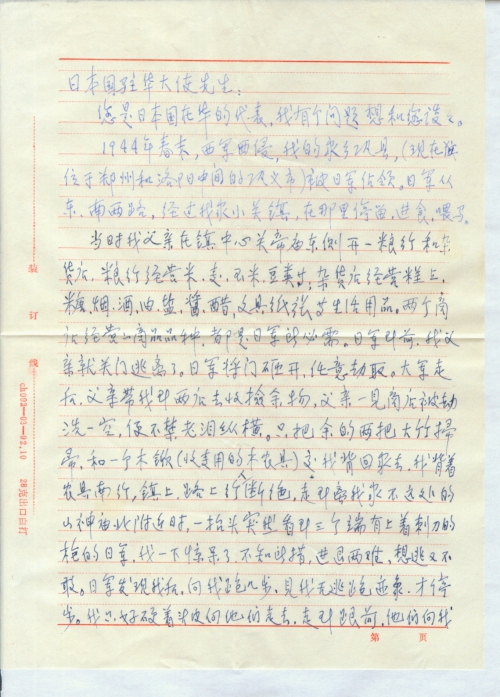 日本国驻华大使先生：
您是日本国在华的代表，我有个问题想和您谈之。
1944年春末，日军西侵，我的家乡巩县，（现在
位于郑州和洛阳中间的巩义市）被日军占领。日军从
东、南两路，经过我家小关镇，在那里停留、进食、喂马。
当时我父亲在镇中心关帝庙东侧开一粮行和杂
货店，粮行经营米、麦、玉米、豆类等，杂货店经营糕点、
糖、烟、酒、油、盐、酱、醋、文具纸张等生活用品。两个商
店经营之商品品种，都是日军所必需。日军到前，我父
亲就关门逃离了，日军将门砸开，任意劫取。大军走
后，父亲带我到两店去收捡余物，父亲一见商店被劫
洗一空，便不禁老泪纵横。只把余的两把大竹扫
帚，和一个木锨（收麦用的木农具）交我背回家去，我背着
农具南行，镇上、路上行人断绝，走到离我家不远的
山神庙北附近时，一抬头突然看到三个端有上着刺刀的
枪的日军，我一下惊呆了，不知所措，进退两难，想逃又不
敢。日军发现我后，向我跑几步，见我无逃跑迹象，才停
步。我只好硬着头皮向他们走去，走到跟前，他们向我
装
订
线
第 页